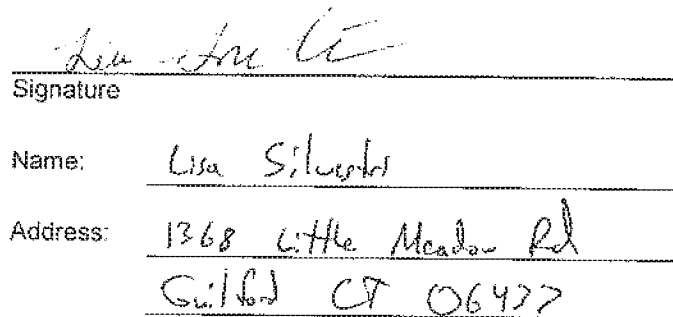 Signature
Name: Lisa Silvestri
Address: 1368 Little Meadow Rd
Guilford CT 06477